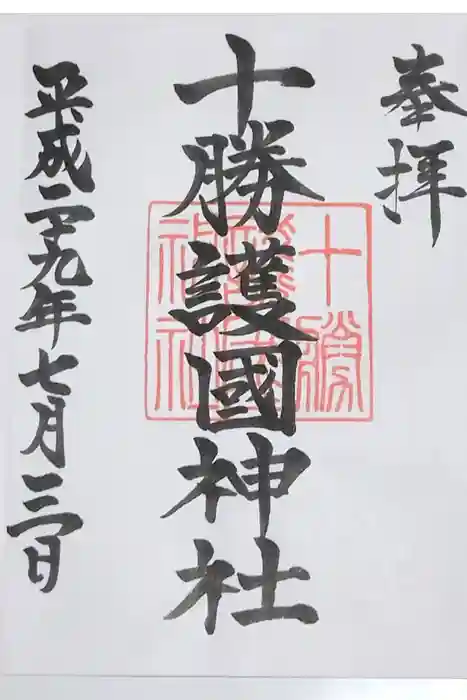 奉拝
十勝護國神社
十勝
護國
神社
平成二十九年七月三日